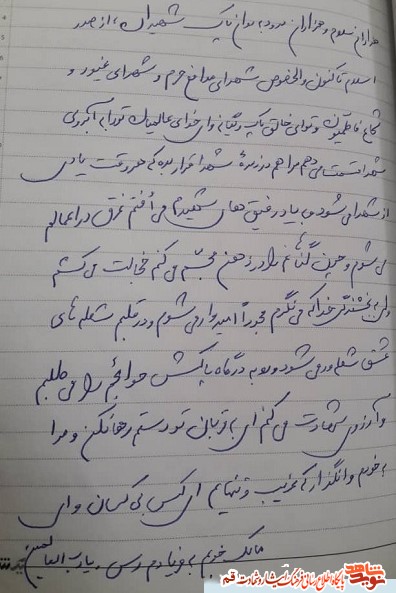 هزاران سلام و هزاران درود به روان پاک شهیدان، از صدر
اسلام تا کنون و بالخصوص شهدای مدافع حرم و شهدای غیور و
شجاع فاطمیون و توای خالق پاک و یگانه وای خدای عالمیان تو را به آبروی
شهدا قسمت می دهم مرا هم در زمرهٔ شهدا قرار بده که هر وقت یادی
از شهدا می شود و به یاد رفیق های شهیدم می افتم غرق در اعمالم
می شوم و چون گناهانم را در ذهن مجسم می کنم خجالت می کشم
ولی به بخشندگی خدا که می نگرم مجدداً امیدوار می شوم و در قلبم شعله های
عشق شعله ور می شود و رو به درگاه پاکش حوائجم را می طلبم
و آرزوی شهادت می کنم ای به قربان تو دستم رها نکن و مرا
به خودم وانگذار که غریب و تنهایم ای کس بی کسان وای
مالک خوبم به فریادم رس . یارب العالمین
نوید شاهد
پایگاه اطلاع رسانی فرهنگ ایثار و شهادت قم